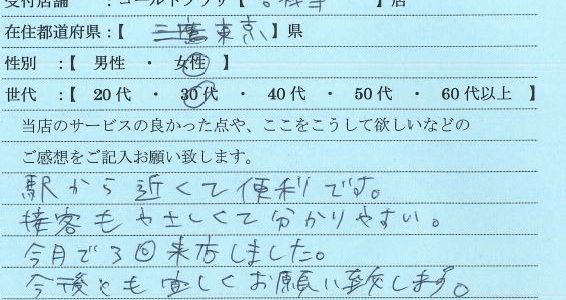 受付店舗 : ゴールドプラザ【 】店
在住都道府県:【 東京 】県
性別 :【 男性 ・ 女性 】
世代 :【 20代 ・ 30代 ・ 40代 ・ 50代 ・ 60代以上 】
当店のサービスの良かった点や、ここをこうして欲しいなどの
ご感想をご記入お願い致します。
駅から近くて便利です。
接客もやさしくて分かりやすい。
今月で3回来店しました。
今後とも宜しくお願い致します。